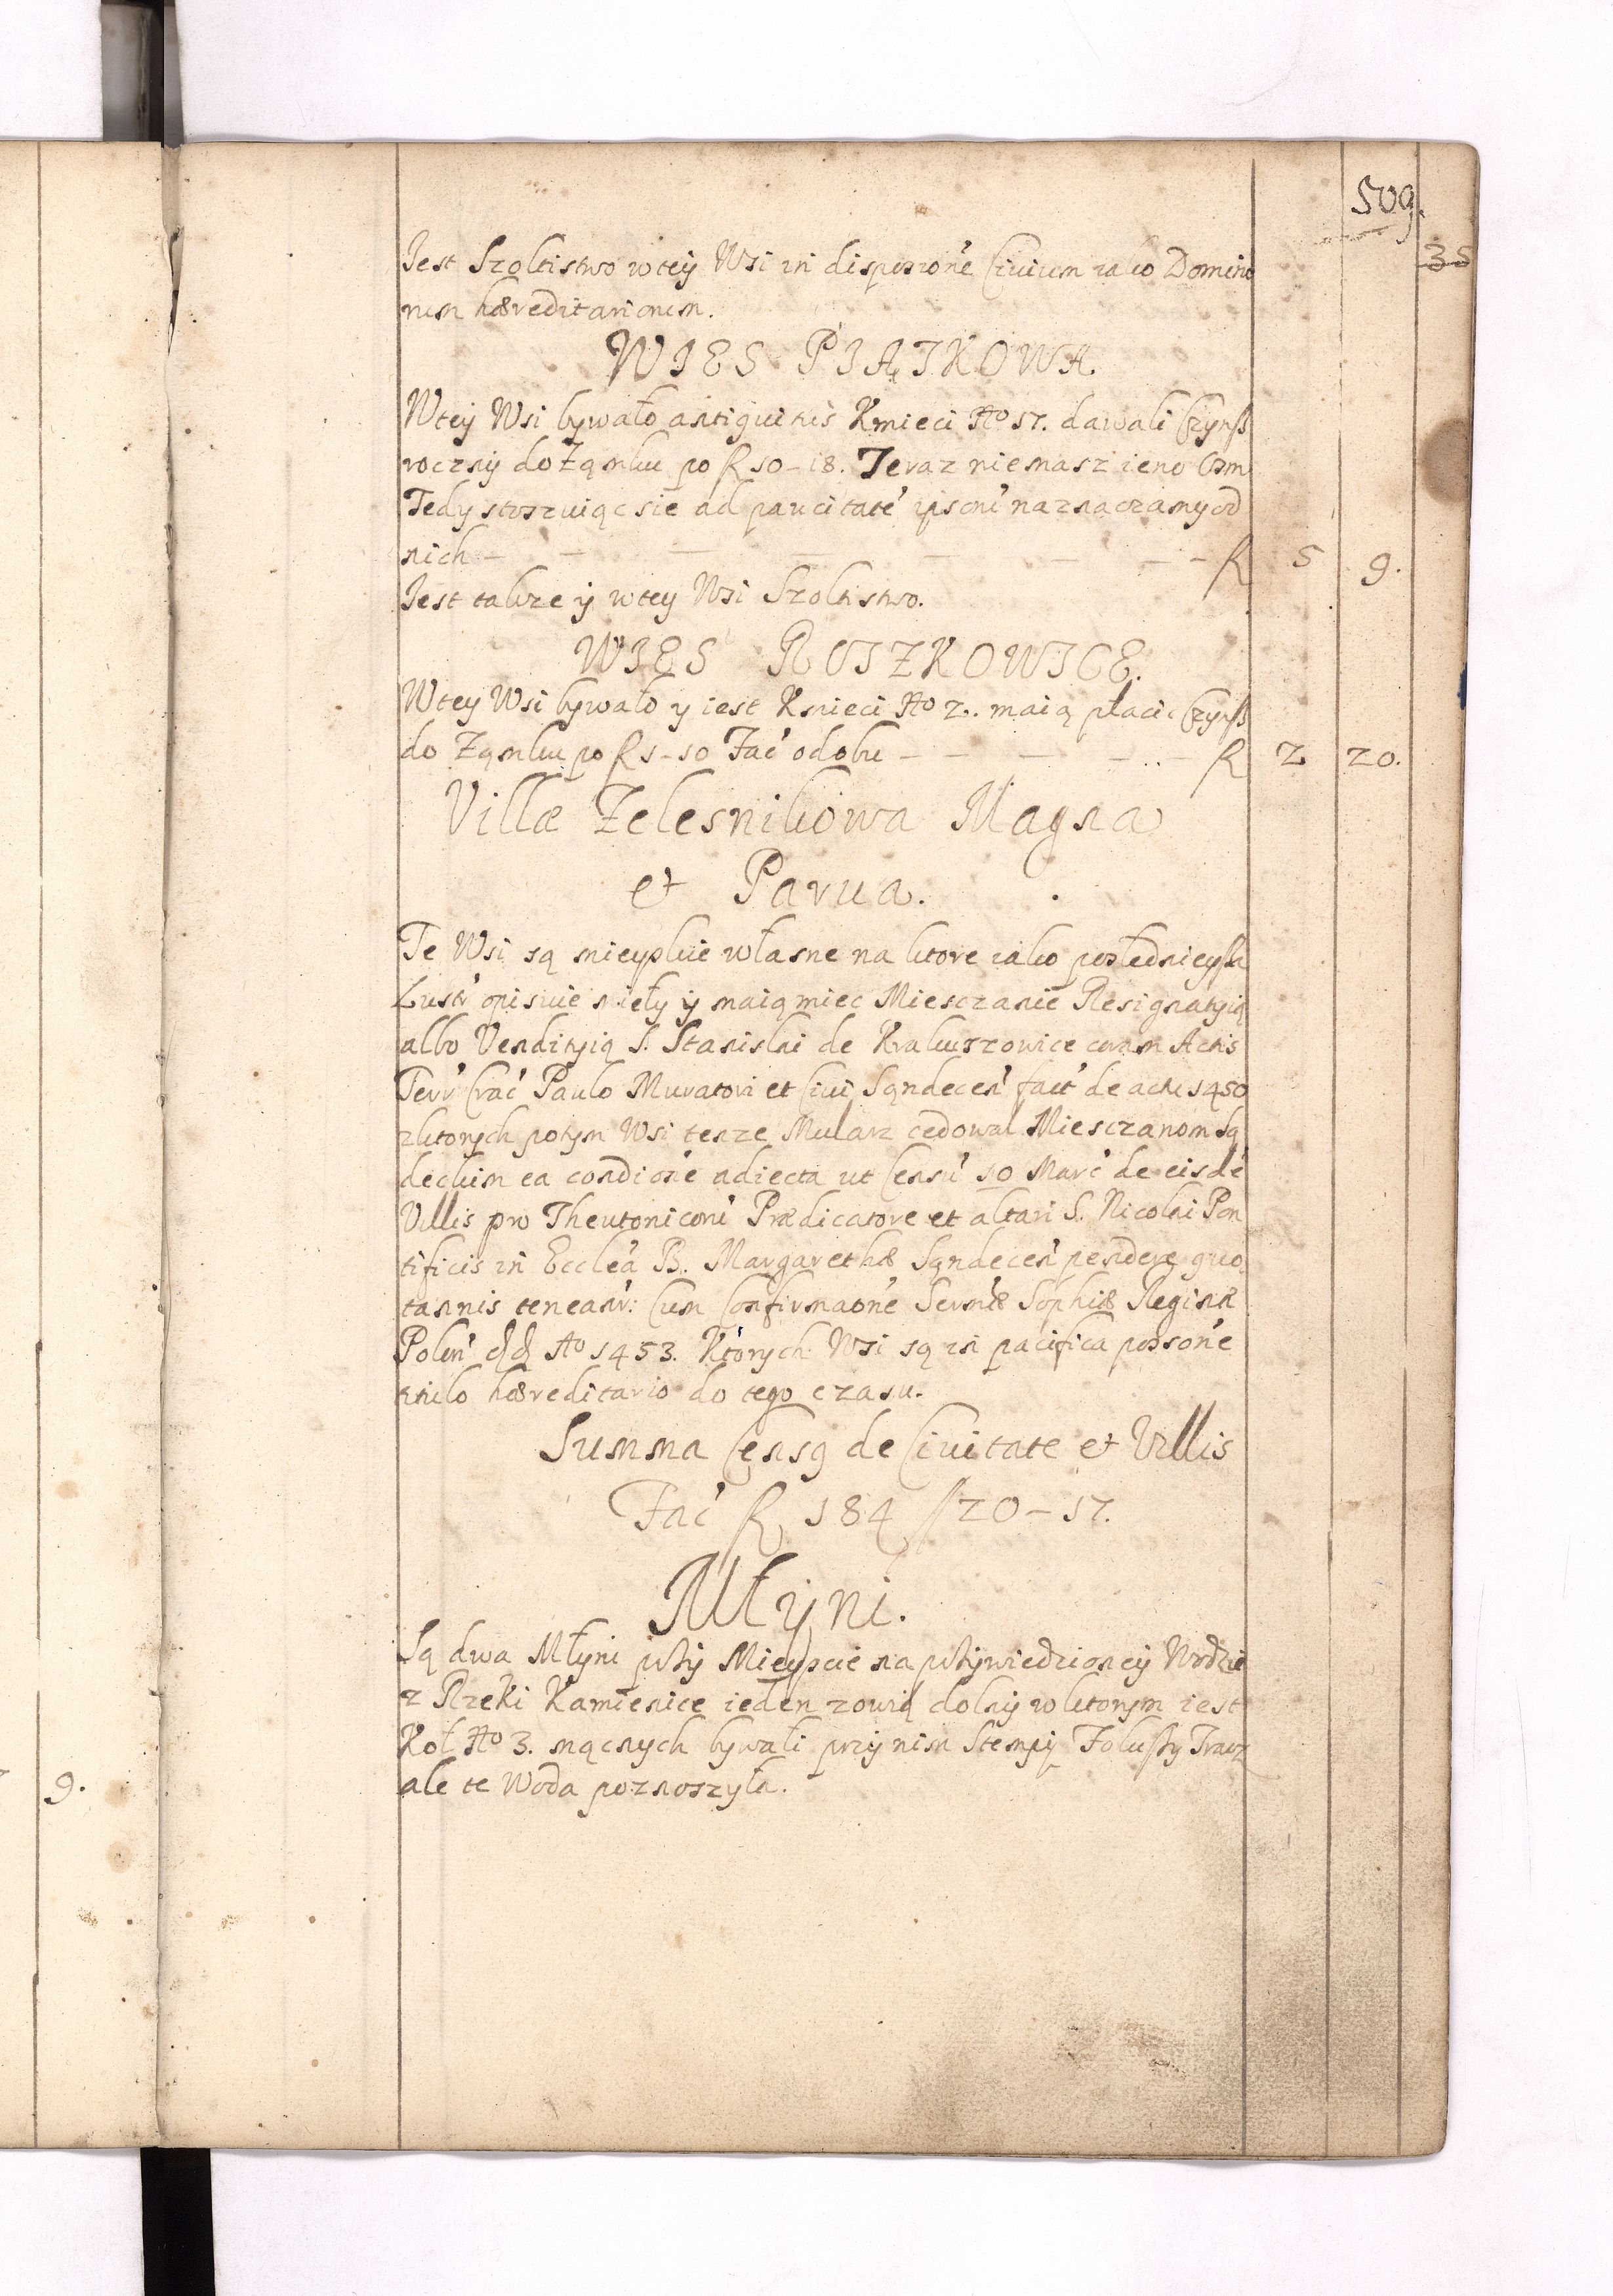 509.
35
Jest Szoltistwo wtey Wsi in disposione Civium iako Domino
rum hæreditariorum.
WIES PIĄTKOWA.
Wtey Wsi bywało antiquitus Kmieci No 17. dawali Czynß
roczny do Ząmku po R 10-18. Teraz niemasz ieno
Tedy stoszuiąc sie ad paucitate ipsoru naznaczamy od
nich — — — — — — — R 5 9.
Jest takze y wtey Wsi Szoltistwo.
WIES RUTZKOWICE.
Wtey Wsi bywało y iest Kmieci No 2. maią płacic Czynß
do Ząmku po R 1-10 Fac' odobu — — — — — R 2 20.
Villæ Zelesnikowa Magna
et Parua.
Te Wsi są mieyskie własne na ktore iako poslednieysza
Lustr' opisuie mieły y maią miec Miesczanie Resignatyią
albo Vendityią S. Stanislai de Krakuszowice coram Actis
Terr' Crac' Paulo Muratori et Civi Sąndecen' fact' de actu 1450
zktorych potym Wsi tenze Mularz cedował Miesczanom Są
deckim ea condicione adiecta ut Censu' 10 Marc' de eisde'
Villis pro Theutonicoru' Prædicatore et altari S. Nicolai Pon
tificis in Ecclea B. Margarethæ Sąndecen' pendere quo
tannis teneatur: Cum Confirmatone Sermæ Sophiæ Reginæ
Polon' dd Ao 1453. Ktorych Wsi są in pacifica possone
titulo hæreditario do tego czasu.
Summa Censq de Civitate et Villis
Fac' R 184 / 20 – 17.
Młyni.
Są dwa Młyni przy Mieyscie na przywiedzioney Wodzie
z Rzeki Kamienice ieden zowią dolny wktorym iest
Koł No 3. mącnych bywali przy nim Stempy Folusszy Tracz
ale te Woda poznoszyła.
9.